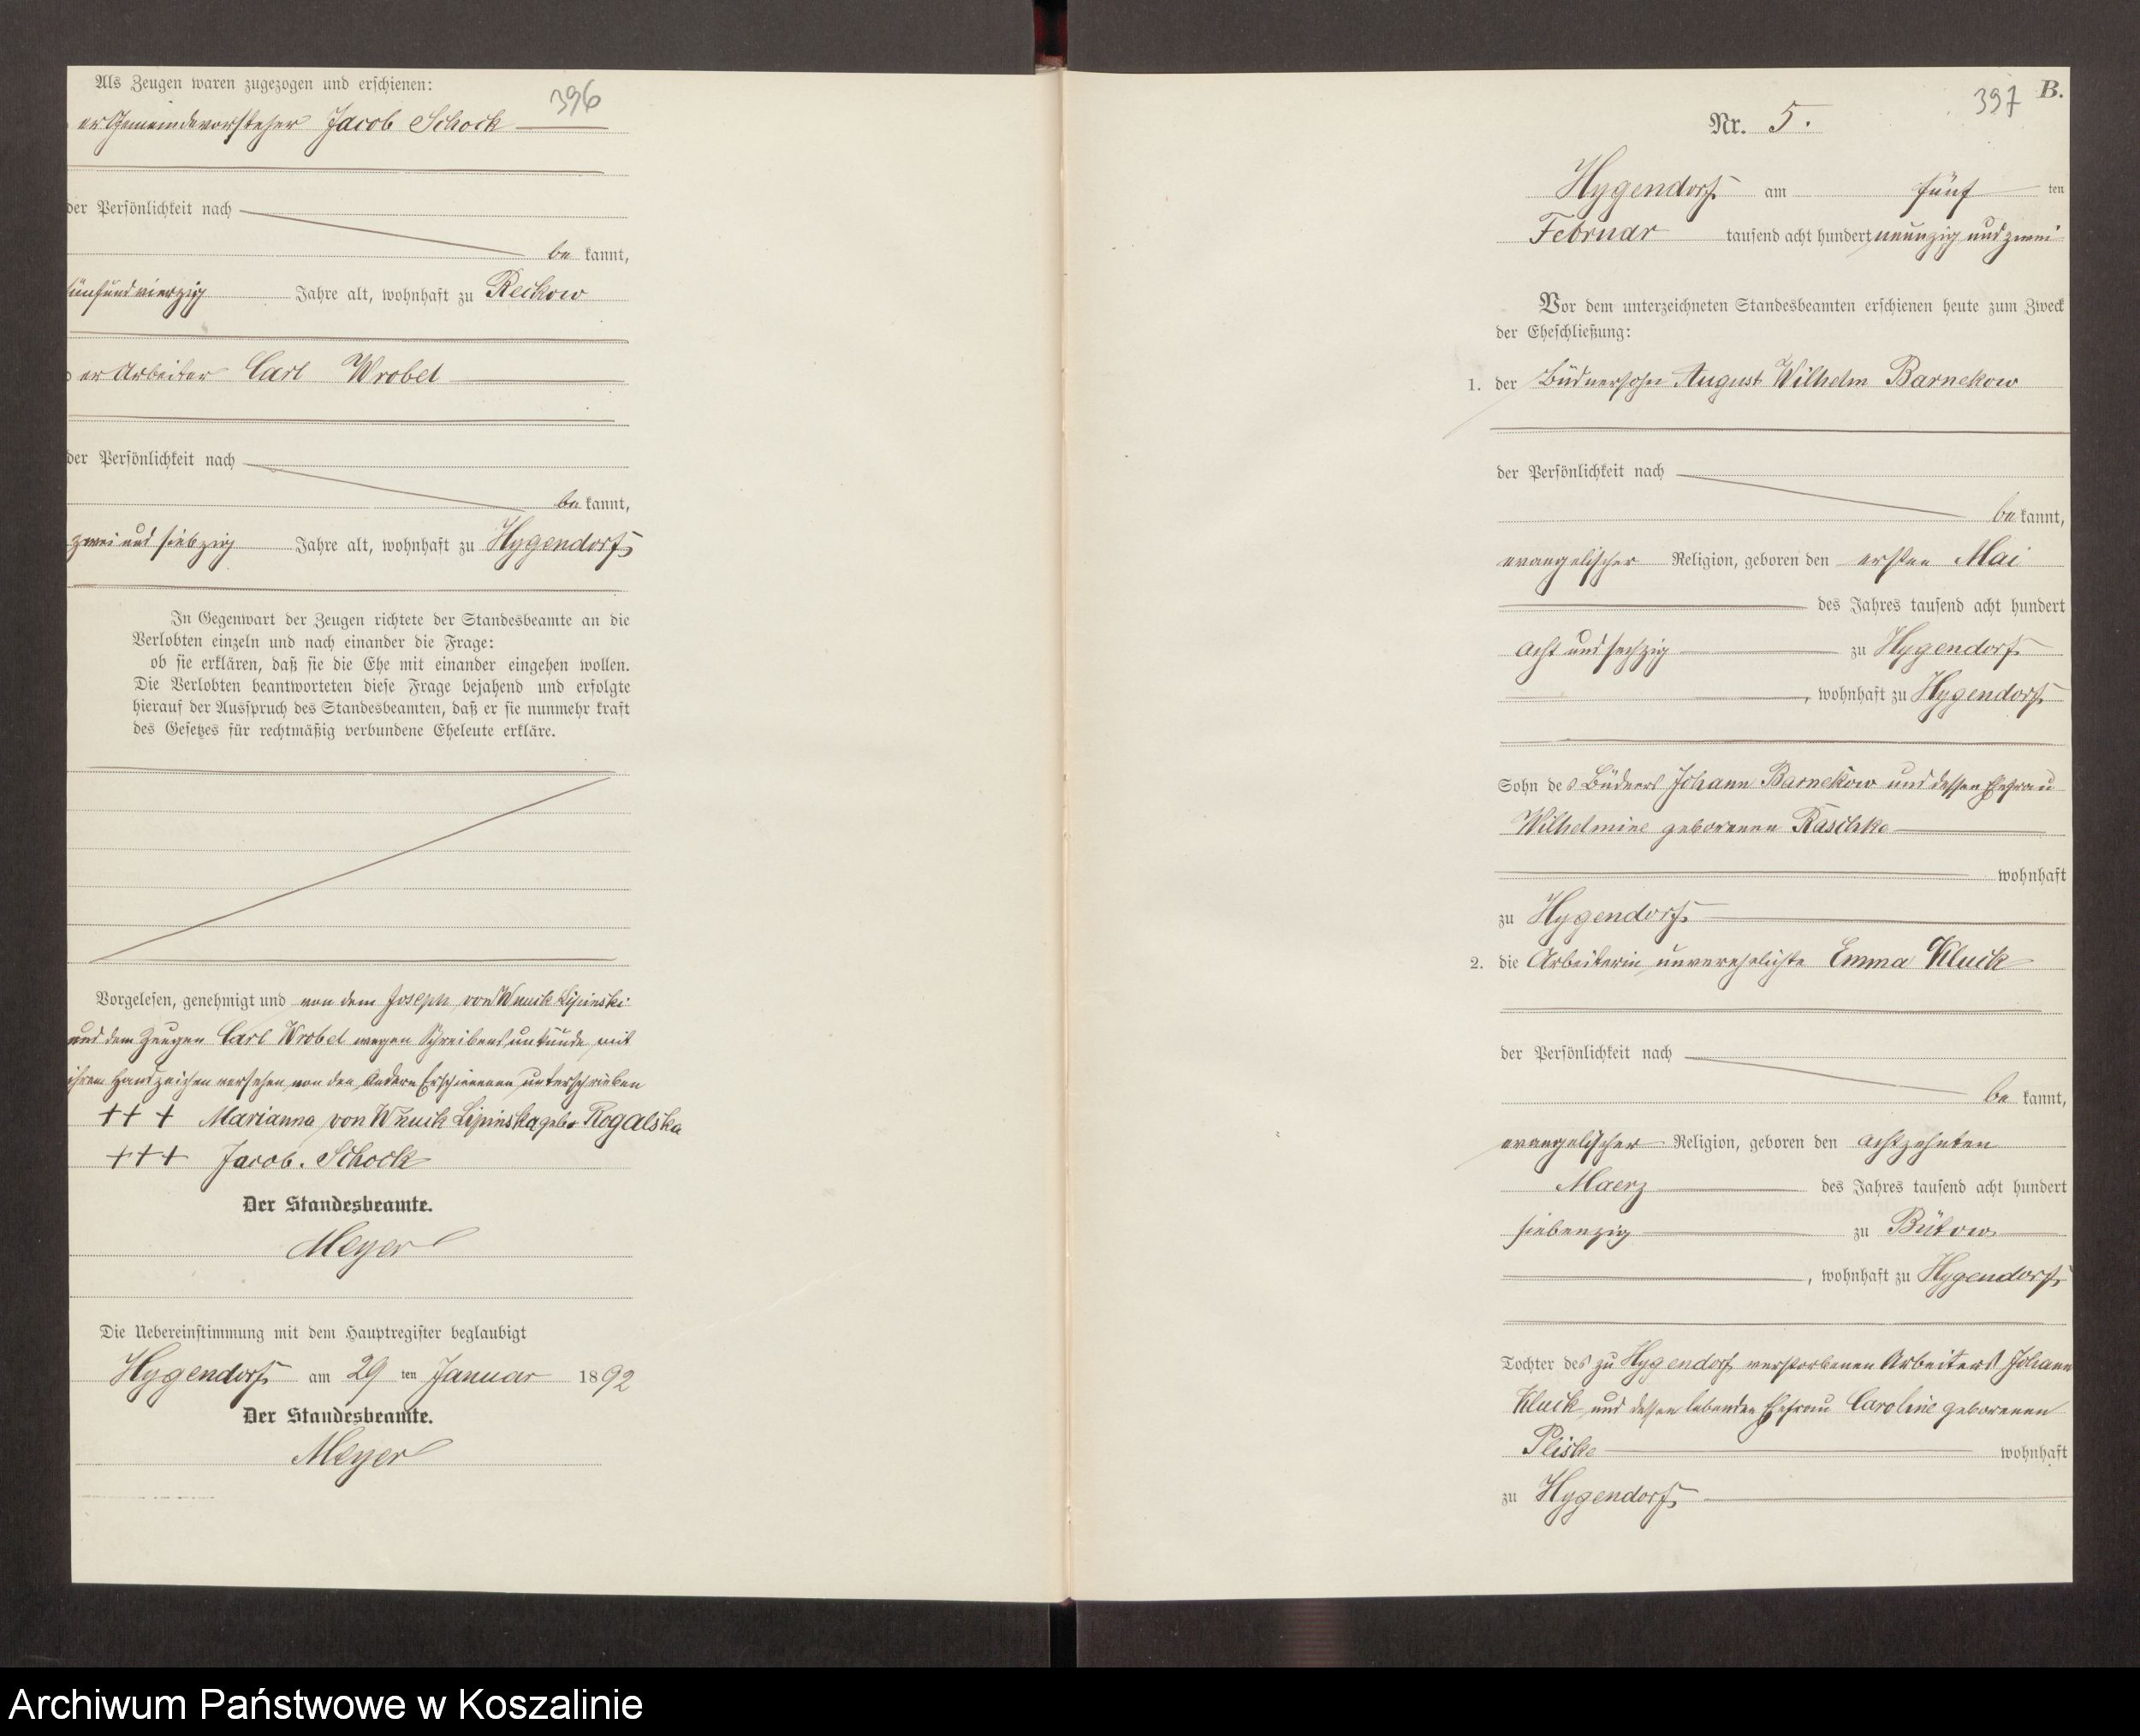 Als Zeugen waren zugezogen und erschienen:
396
er Gemeindevorsteher Jacob Schock
der Persönlichkeit nach
be kannt,
fünfundvierzig Jahre alt, wohnhaft zu Reckow
er Arbeiter Carl Wrobel
der Persönlichkeit nach
be kannt,
zwei und siebzig Jahre alt, wohnhaft zu Hygendorf
In Gegenwart der Zeugen richtete der Standesbeamte an die
Verlobten einzeln und nach einander die Frage:
ob sie erklären, daß sie die Ehe mit einander eingehen wollen.
Die Verlobten beantworteten diese Frage bejahend und erfolgte
hierauf der Ausspruch des Standesbeamten, daß er sie nunmehr kraft
des Gesetzes für rechtmäßig verbundene Eheleute erkläre.
Vorgelesen, genehmigt und von dem Joseph von Wnuck Lipinski
und dem Zeugen Carl Wrobel wegen Schreibensunkunde mit
ihrem Handzeichen versehen, von den Andern Erschienenen unterschrieben
+++ Marianna von Wnuck Lipinska geb. Rogalska
+++ Jacob. Schock
Der Standesbeamte.
Meyer
Die Uebereinstimmung mit dem Hauptregister beglaubigt
Hygendorf am 29 ten Januar 1892
Der Standesbeamte.
Meyer
B.
397
Nr. 5.
Hygendorf am fünf ten
Februar tausend acht hundert neunzig und zwei
Vor dem unterzeichneten Standesbeamten erschienen heute zum Zweck
der Eheschließung:
1. der Büdnersohn August Wilhelm Barnekow
der Persönlichkeit nach
be kannt,
evangelischer Religion, geboren den ersten Mai
des Jahres tausend acht hundert
acht und sechzig zu Hygendorf
, wohnhaft zu Hygendorf
Sohn des Büdners Johann Barnekow und dessen Ehefrau
Wilhelmine geborenen Raschke
wohnhaft
zu Hygendorf
2. die Arbeiterin unverehelichte Emma Kluck
der Persönlichkeit nach
be kannt,
evangelischer Religion, geboren den achtzehnten
Maerz des Jahres tausend acht hundert
siebenzig zu Bütow
, wohnhaft zu Hygendorf
Tochter des zu Hygendorf verstorbenen Arbeiters Johann
Kluck und dessen lebenden Ehefrau Caroline geborenen
Pliske wohnhaft
zu Hygendorf
Archiwum Państwowe w Koszalinie